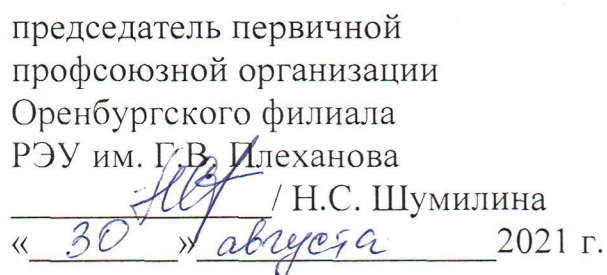 председатель первичной
профсоюзной организации
Оренбургского филиала
РЭУ им. Г.В. Плеханова
/ Н.С. Шумилина
« 30 » августа 2021 г.